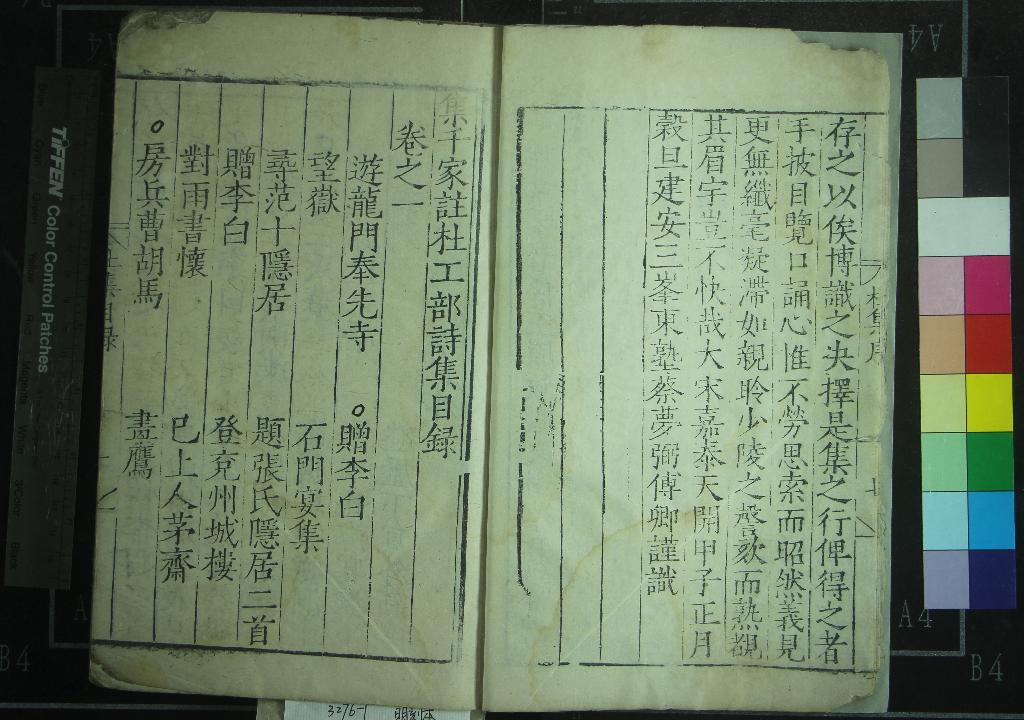 存之以俟博識之決擇是集之行俾得之者
手披目覽口誦心惟不勞思索而昭然義見
更無纖毫凝滯如親聆少陵之謦欬而熟覩
其眉宇豈不快哉大宋嘉泰天開甲子正月
穀旦建安三峯東塾蔡夢弼傅卿謹識
集千家註杜工部詩集目録
卷之一
遊龍門奉先寺 ○贈李白
望嶽 石門宴集
尋范十隱居 題張氏隱居二首
贈李白 登兗州城樓
對雨書懷 巳上人茅齋
○房兵曹胡馬 畫鷹
TIFFEN Color Control Patches
A4
A4
B4
B4
3276-1 明刻本